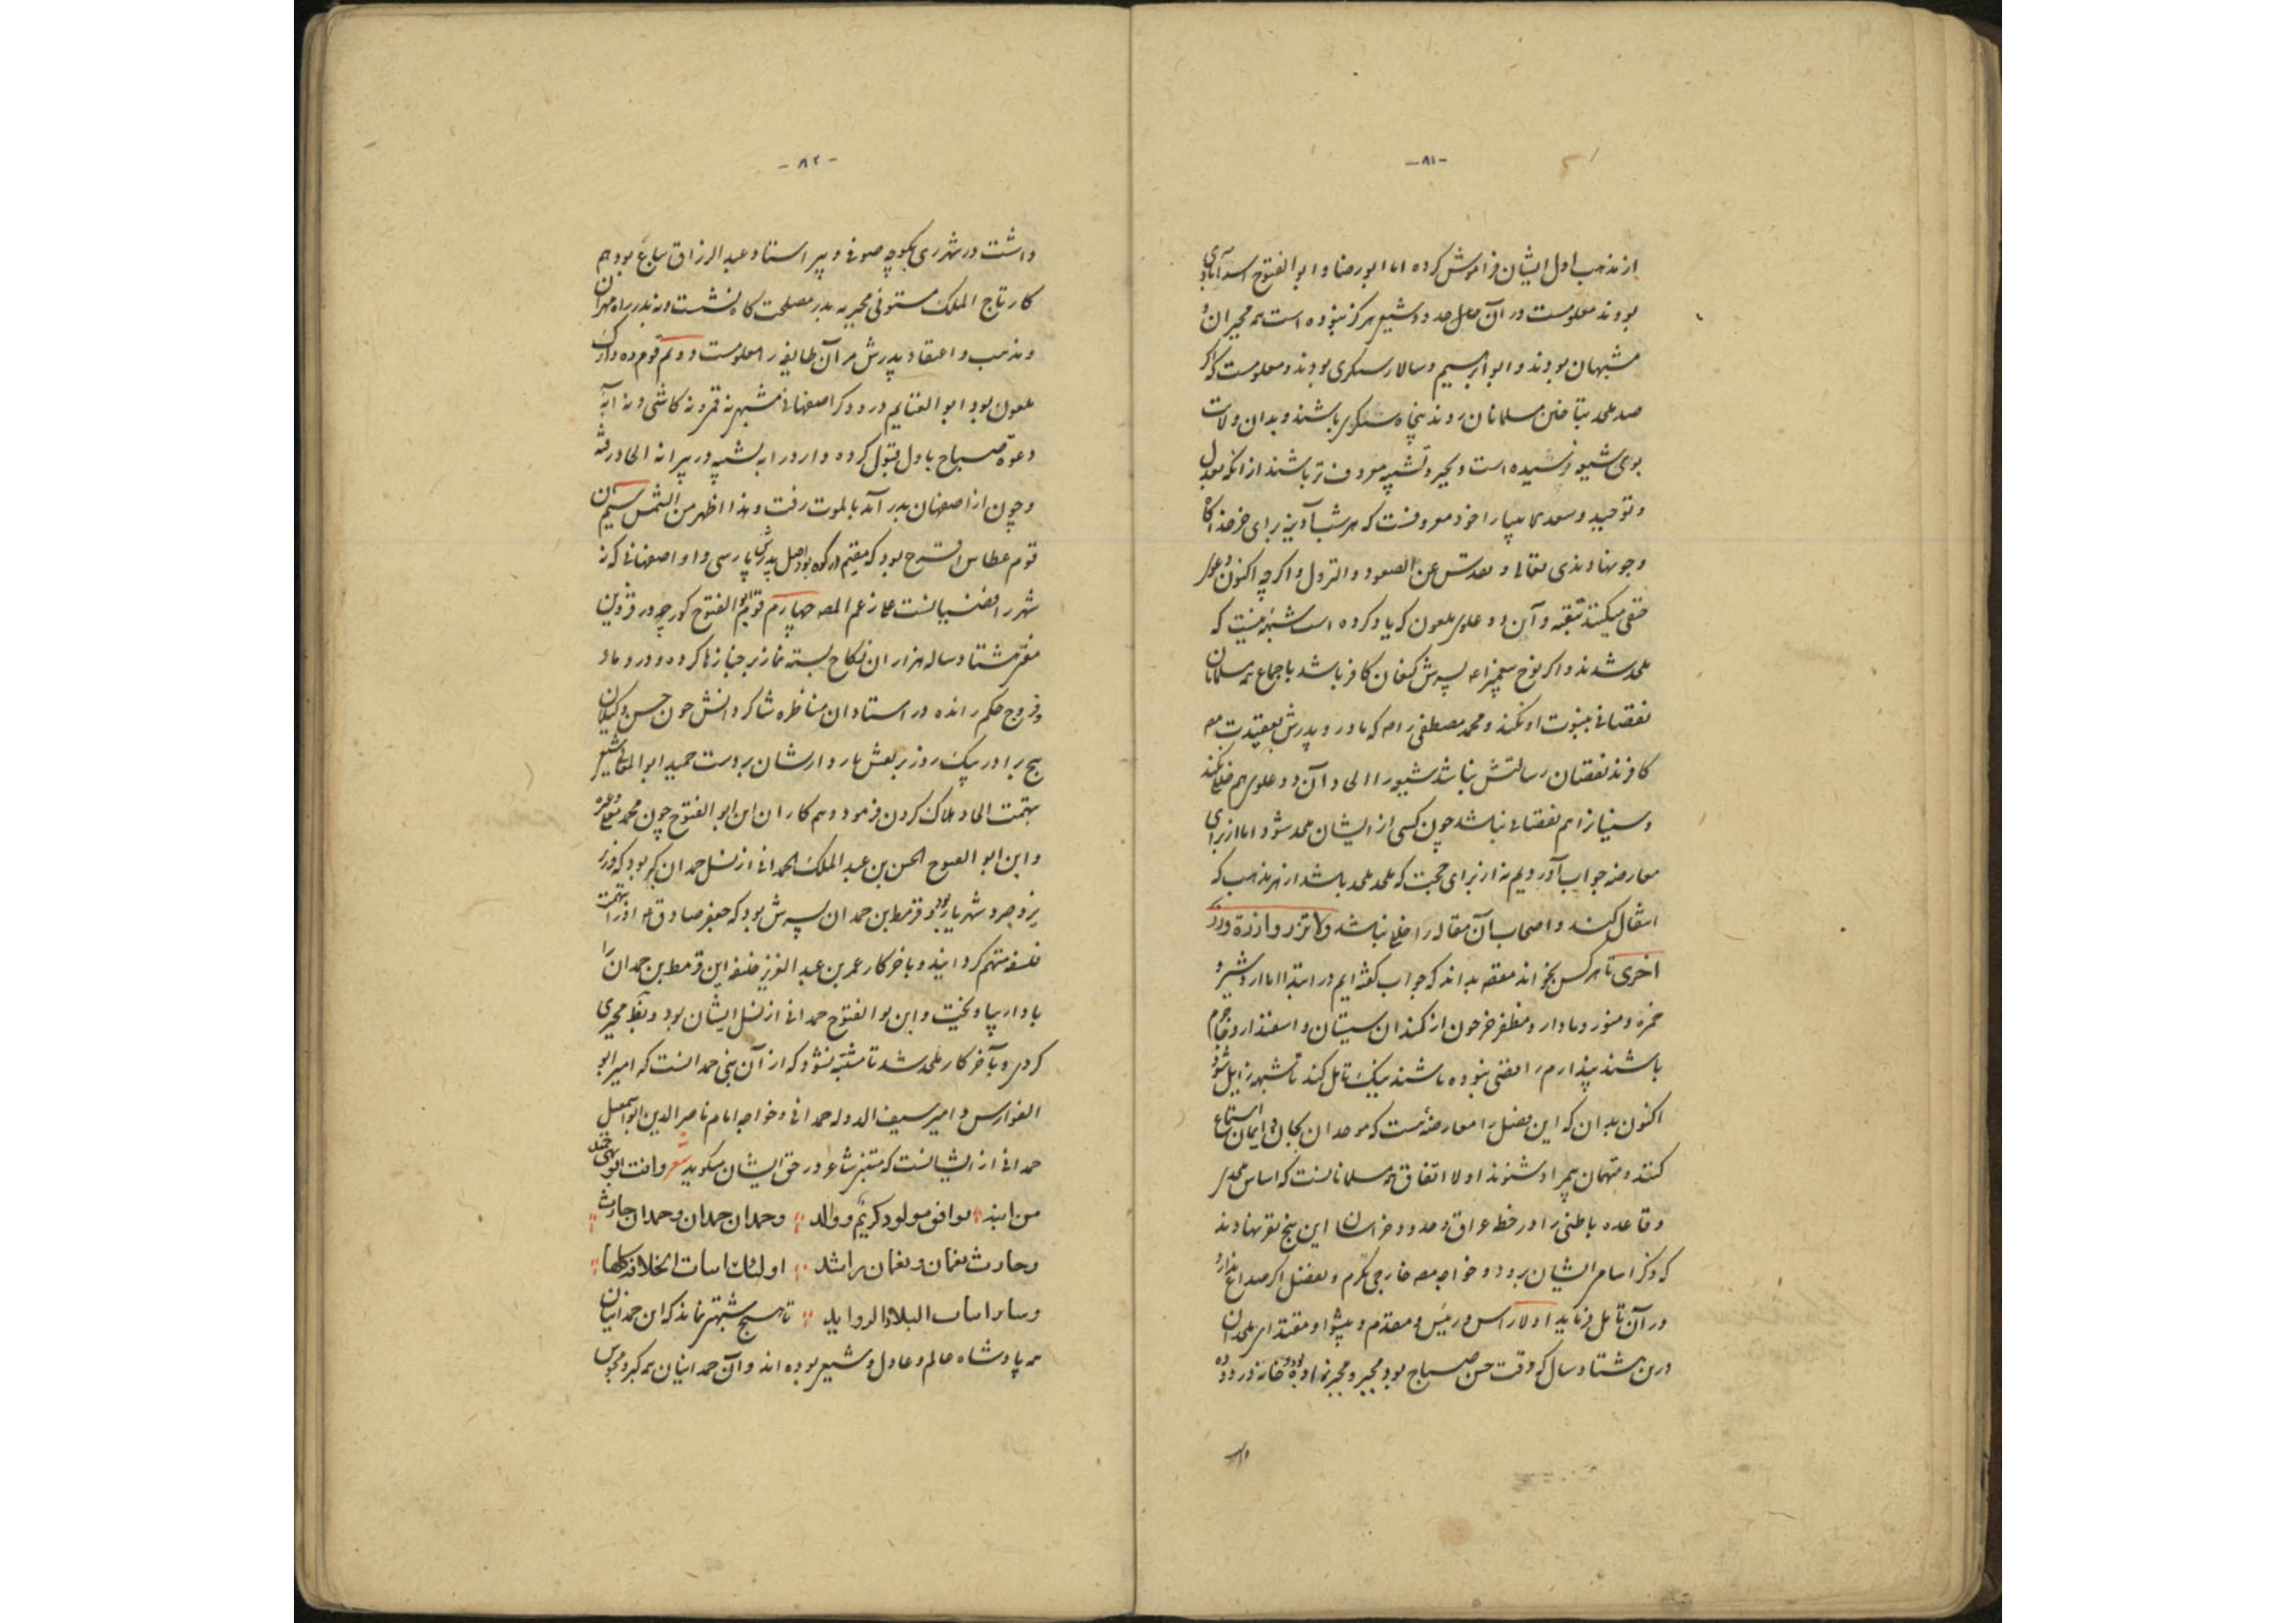 -۸۱-
از مذهب اول ایشان فراموش کرده اما ابو رضا و ابو الفتوح اسدآبادی
بودند معلومست در آن حدود شیعی هرگز نبوده است همه مجبران و
مشبهان بودند و ابو ابرهیم و سالار بودند و معلومست که اگر
صد ملحد بتاختن مسلمانان روند پنجاه باشند و بدان ولات
بوی شیعی نرسیده است و بجبر و تشبیه معروف تر باشند از آنکه بعدل
و توحید و خود معروفست که هر شب آدینه برای خر خدا کاه
و جو نهادندی تعالی و تقدس عن الصعود و النزول و اگر چه اکنون دعوی
حنفی میکنند بتقیه و آن دو علوی ملعون که یاد کرده است شبهه نیست که
ملحد شدند و اگر نوح پیغمبر را پسرش کنعان کافر باشد باجماع همه مسلمانان
نقصانی بنبوت او نکند و محمد مصطفی را که مادر و پدرش بعقیدت
کافرند نقصان رسالتش نباشد شیعه را الحاد آن دو علوی هم خللی نکند
و سنیان را هم نقصانی نباشد چون کسی از ایشان ملحد شود اما از برای
معارضه جواب آوردیم نه از برای حجت که ملحد ملحد باشد از هر مذهب که
انتقال کند و اصحاب آن مقاله را خللی نباشد ولا تزر وازرة وزر
اخری تا هر کس بخواند مفصل بداند که جواب گفته ایم در ابتدا اما اردشیر و
حمزه و منور و مادار و مظفر از سیستان و اسفندار و جام
باشند پندارم رافضی نبوده باشند نیک تامل کند تا شبهه زایل شود
اکنون بدان که این فصل را معارضه هست که موحدان بجان و ایمان استماع
کنند و متهمان بمیرند و شنوند اولا اتفاق همه مسلمانانست که اساس ملحدی
و قاعده باطنی را در خطه عراق و حدود خراسان این پنج نفر نهادند
که ذکر اسامی ایشان برود و خواجه خارجی بکرم و بفضل اگر صداع ندارد
در آن تامل فرماید اولا رأس و رئیس و مقدم و پیشوا و مقتدای ملحدان
درین هشتاد سال که وقت حسن صباح بود مجبر و مجبرزاده بود و خانه در ده
-۸۲-
داشت در شهر ری بکوچه صوفی و پیر استاد عبد الرزاق بیاع بود هم
کار تاج الملک مستوفی مجبر نه بدر مصلحت گاه نشست و نه بدر راه مهران
و مذهب و اعتقاد پدرش مر آن طایفه را معلومست دوم قوم ده دارک
ملعون بود ابو الغنایم درودگر اصفهانی مشبهی نه قمی و نه کاشی و نه آبه
دعوة صباح باول قبول کرده و او را به تشبیه در پیرانه الحاد رفته
و چون از اصفهان بدر آمد بالموت رفت و هذا اظهر من الشمس سیم آن
قوم عطاس اقرح بود که مقیم در کوه بود اصل پدرش پارسی و او اصفهانی که نه
شهر رافضیانست علی زعم المصنف چهارم قوم ابو الفتوح کورجه در قزوین
مقری هشتاد ساله هزاران نکاح بسته نماز بر جنازها کرده و در دماء
و فروج حکم رانده در استادان مناظره شاگردانش چون حسن و کیلان
پنج برادر بیک روز بر نعش بردارشان بر دست حمید ابو المعالی شیعی
بتهمت الحاد هلاک کردن فرمود و همکاران این ابو الفتوح چون محمد و غیره
و این ابو الفتوح الحسن بن عبد الملک الحمدانی از نسل حمدان گبر بود که وزیر
یزدجرد شهریار بود و قرمط بن حمدان پسرش بود که جعفر صادق او را بتهمت
فلسفه متهم گردانید و باخر کار عمر بن عبد العزیز خلیفه این قرمط بن حمدان را
با دار بیاویخت و این بو الفتوح حمدانی از نسل ایشان بود و مجبری
کردی و بآخر کار ملحد شد تا مشتبه نشود که از آن بنی حمدانست که امیر ابو
الفوارس و امیر سیف الدوله حمدانی و خواجه امام ناصر الدین ابو اسمعیل
حمدانی از ایشانست که متنبی شاعر در حق ایشان میگوید شعر وانت ابو الهیجا بن حمدان
من ابنه توافق مولود کریم و والد و حمدان حمدان و حمدان حارث
وحارث لقمان ولقمان راشد اولئک انیاب الخلافة کلها
وسایر املاک البلاد الزواید تا هیچ شبهتی نماند که این حمدانیان
همه پادشاه عالم و عادل و شیعی بوده اند و آن حمدانیان همه گبر و مجوس